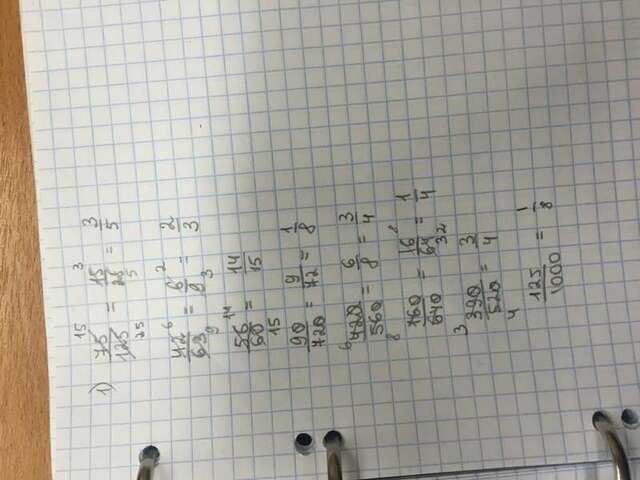 1) 75/125 = 15/25 = 3/5
42/63 = 6/9 = 2/3
56/60 = 14/15
90/720 = 9/72 = 1/8
420/560 = 6/8 = 3/4
160/640 = 16/64 = 1/4
390/520 = 3/4
125/1000 = 1/8